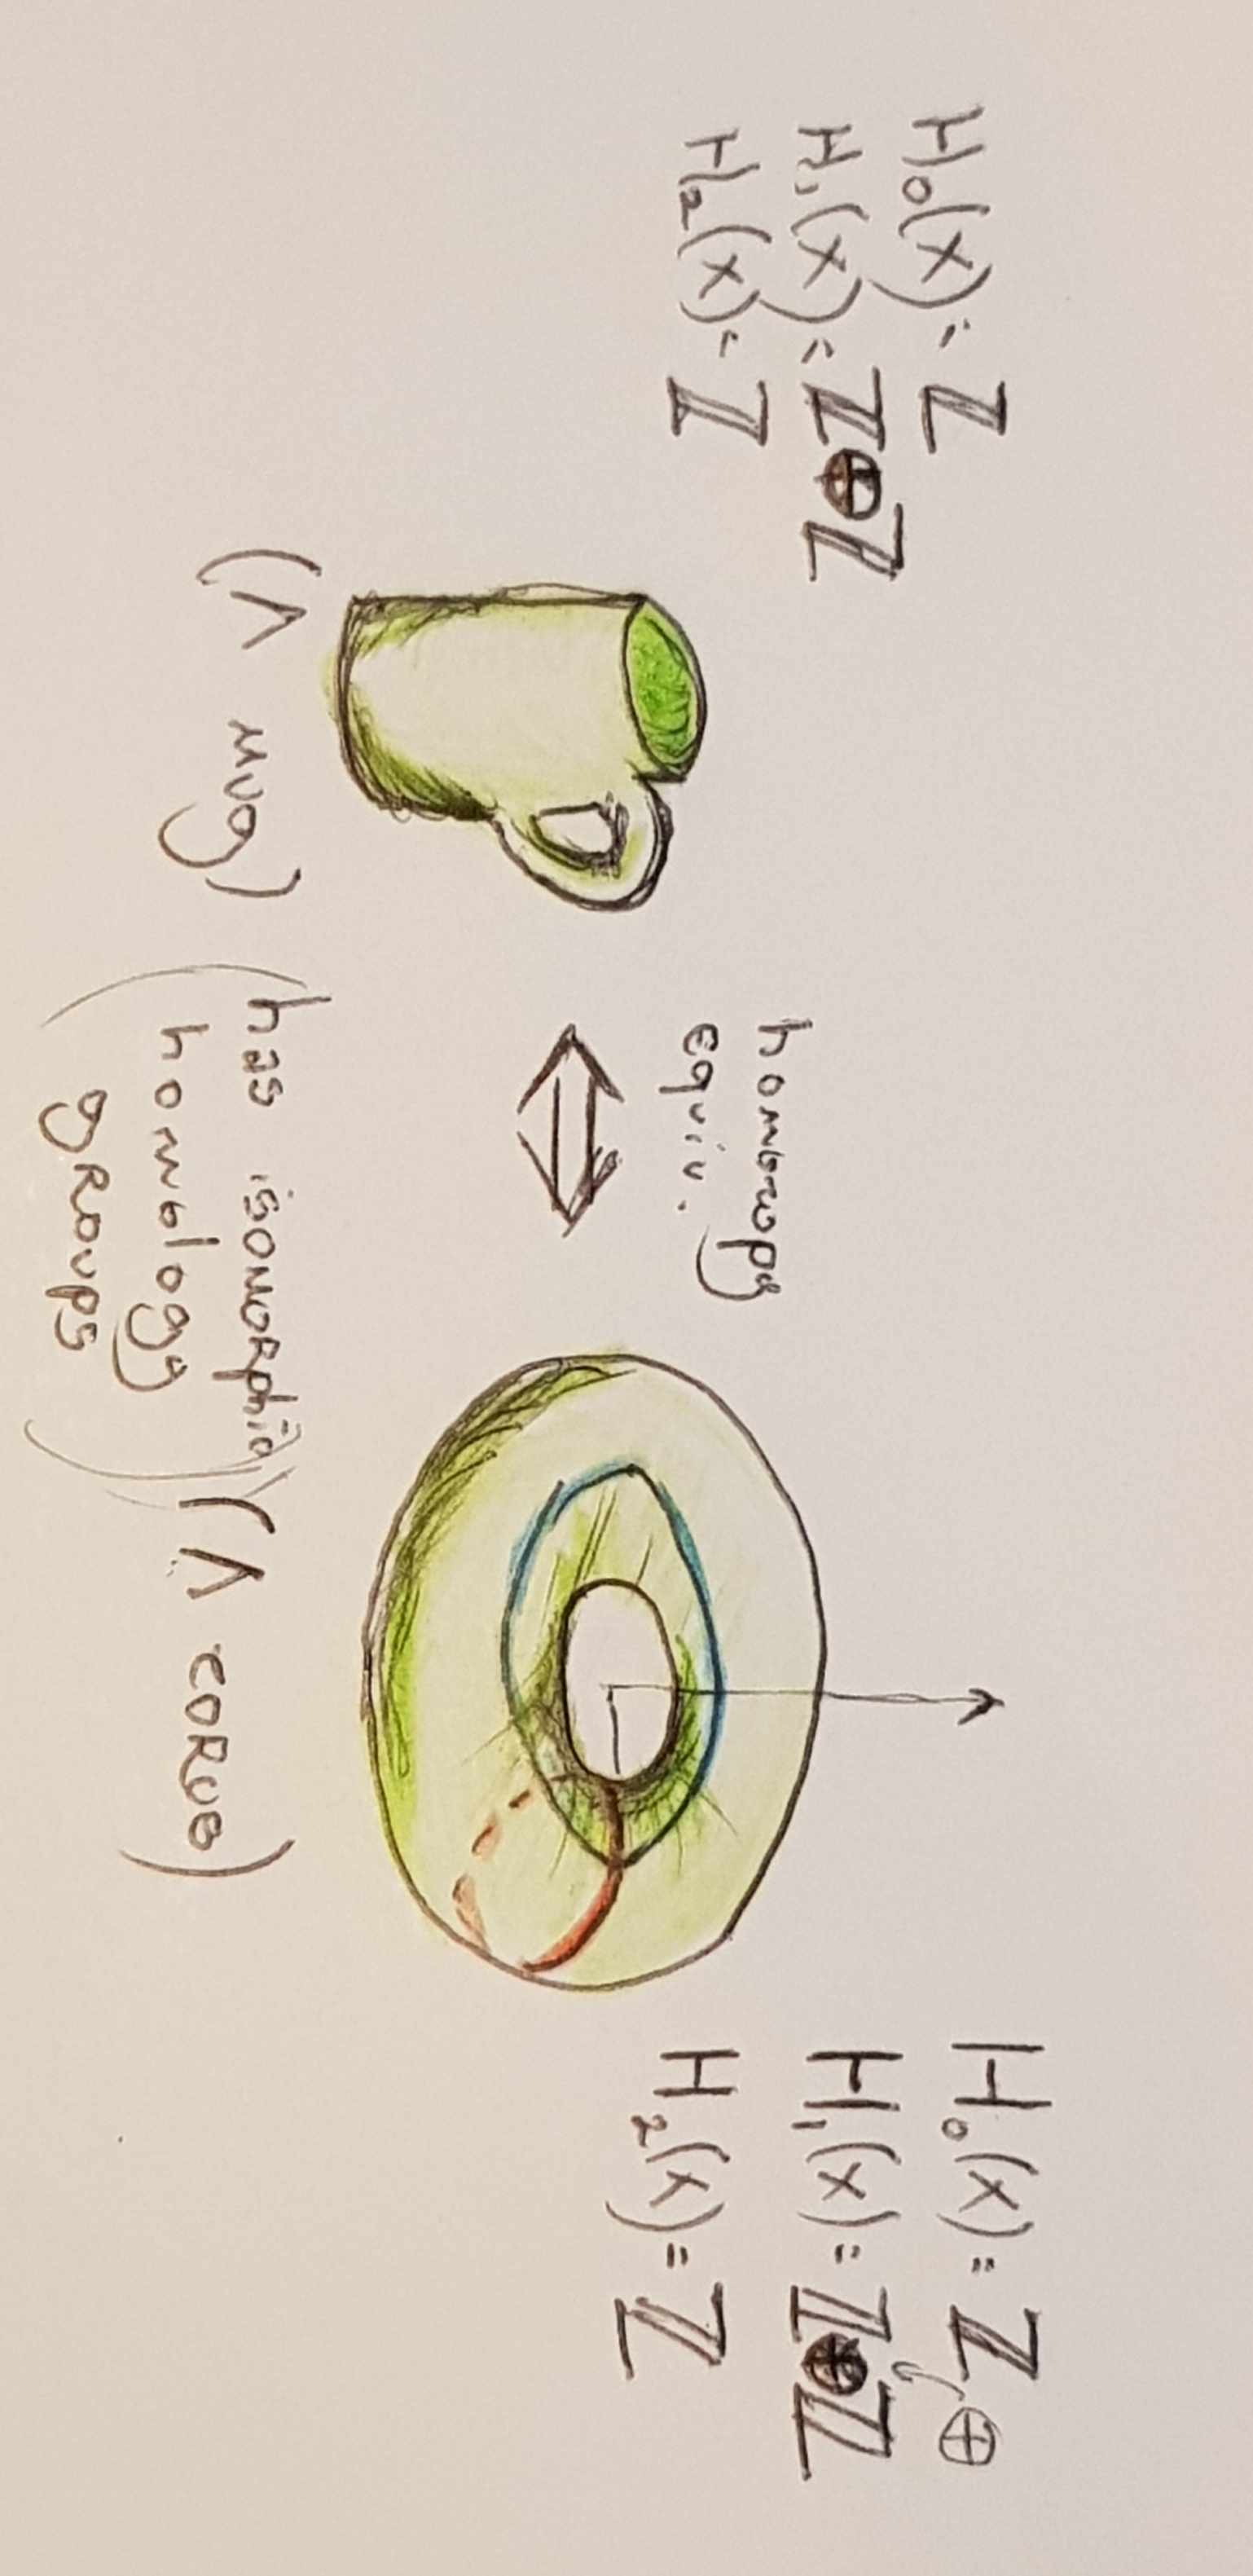 H₀(X) = ℤ
H₁(X) = ℤ⊕ℤ
H₂(X) = ℤ
homotopy
equiv.
⇔
H₀(X) = ℤ ⊕
H₁(X) = ℤ⊕ℤ
H₂(X) = ℤ
(A mug)
(has isomorphic
homology
groups)
(A torus)